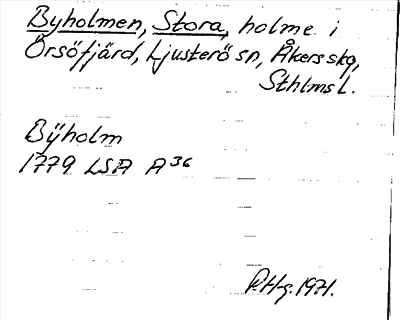 Byholmen, Stora, holme i
Örsöfjärd, Ljusterö sn, Åkers skg,
Sthlms l.
Bÿholm
1779 LSA A36
R.Hg. 1971.